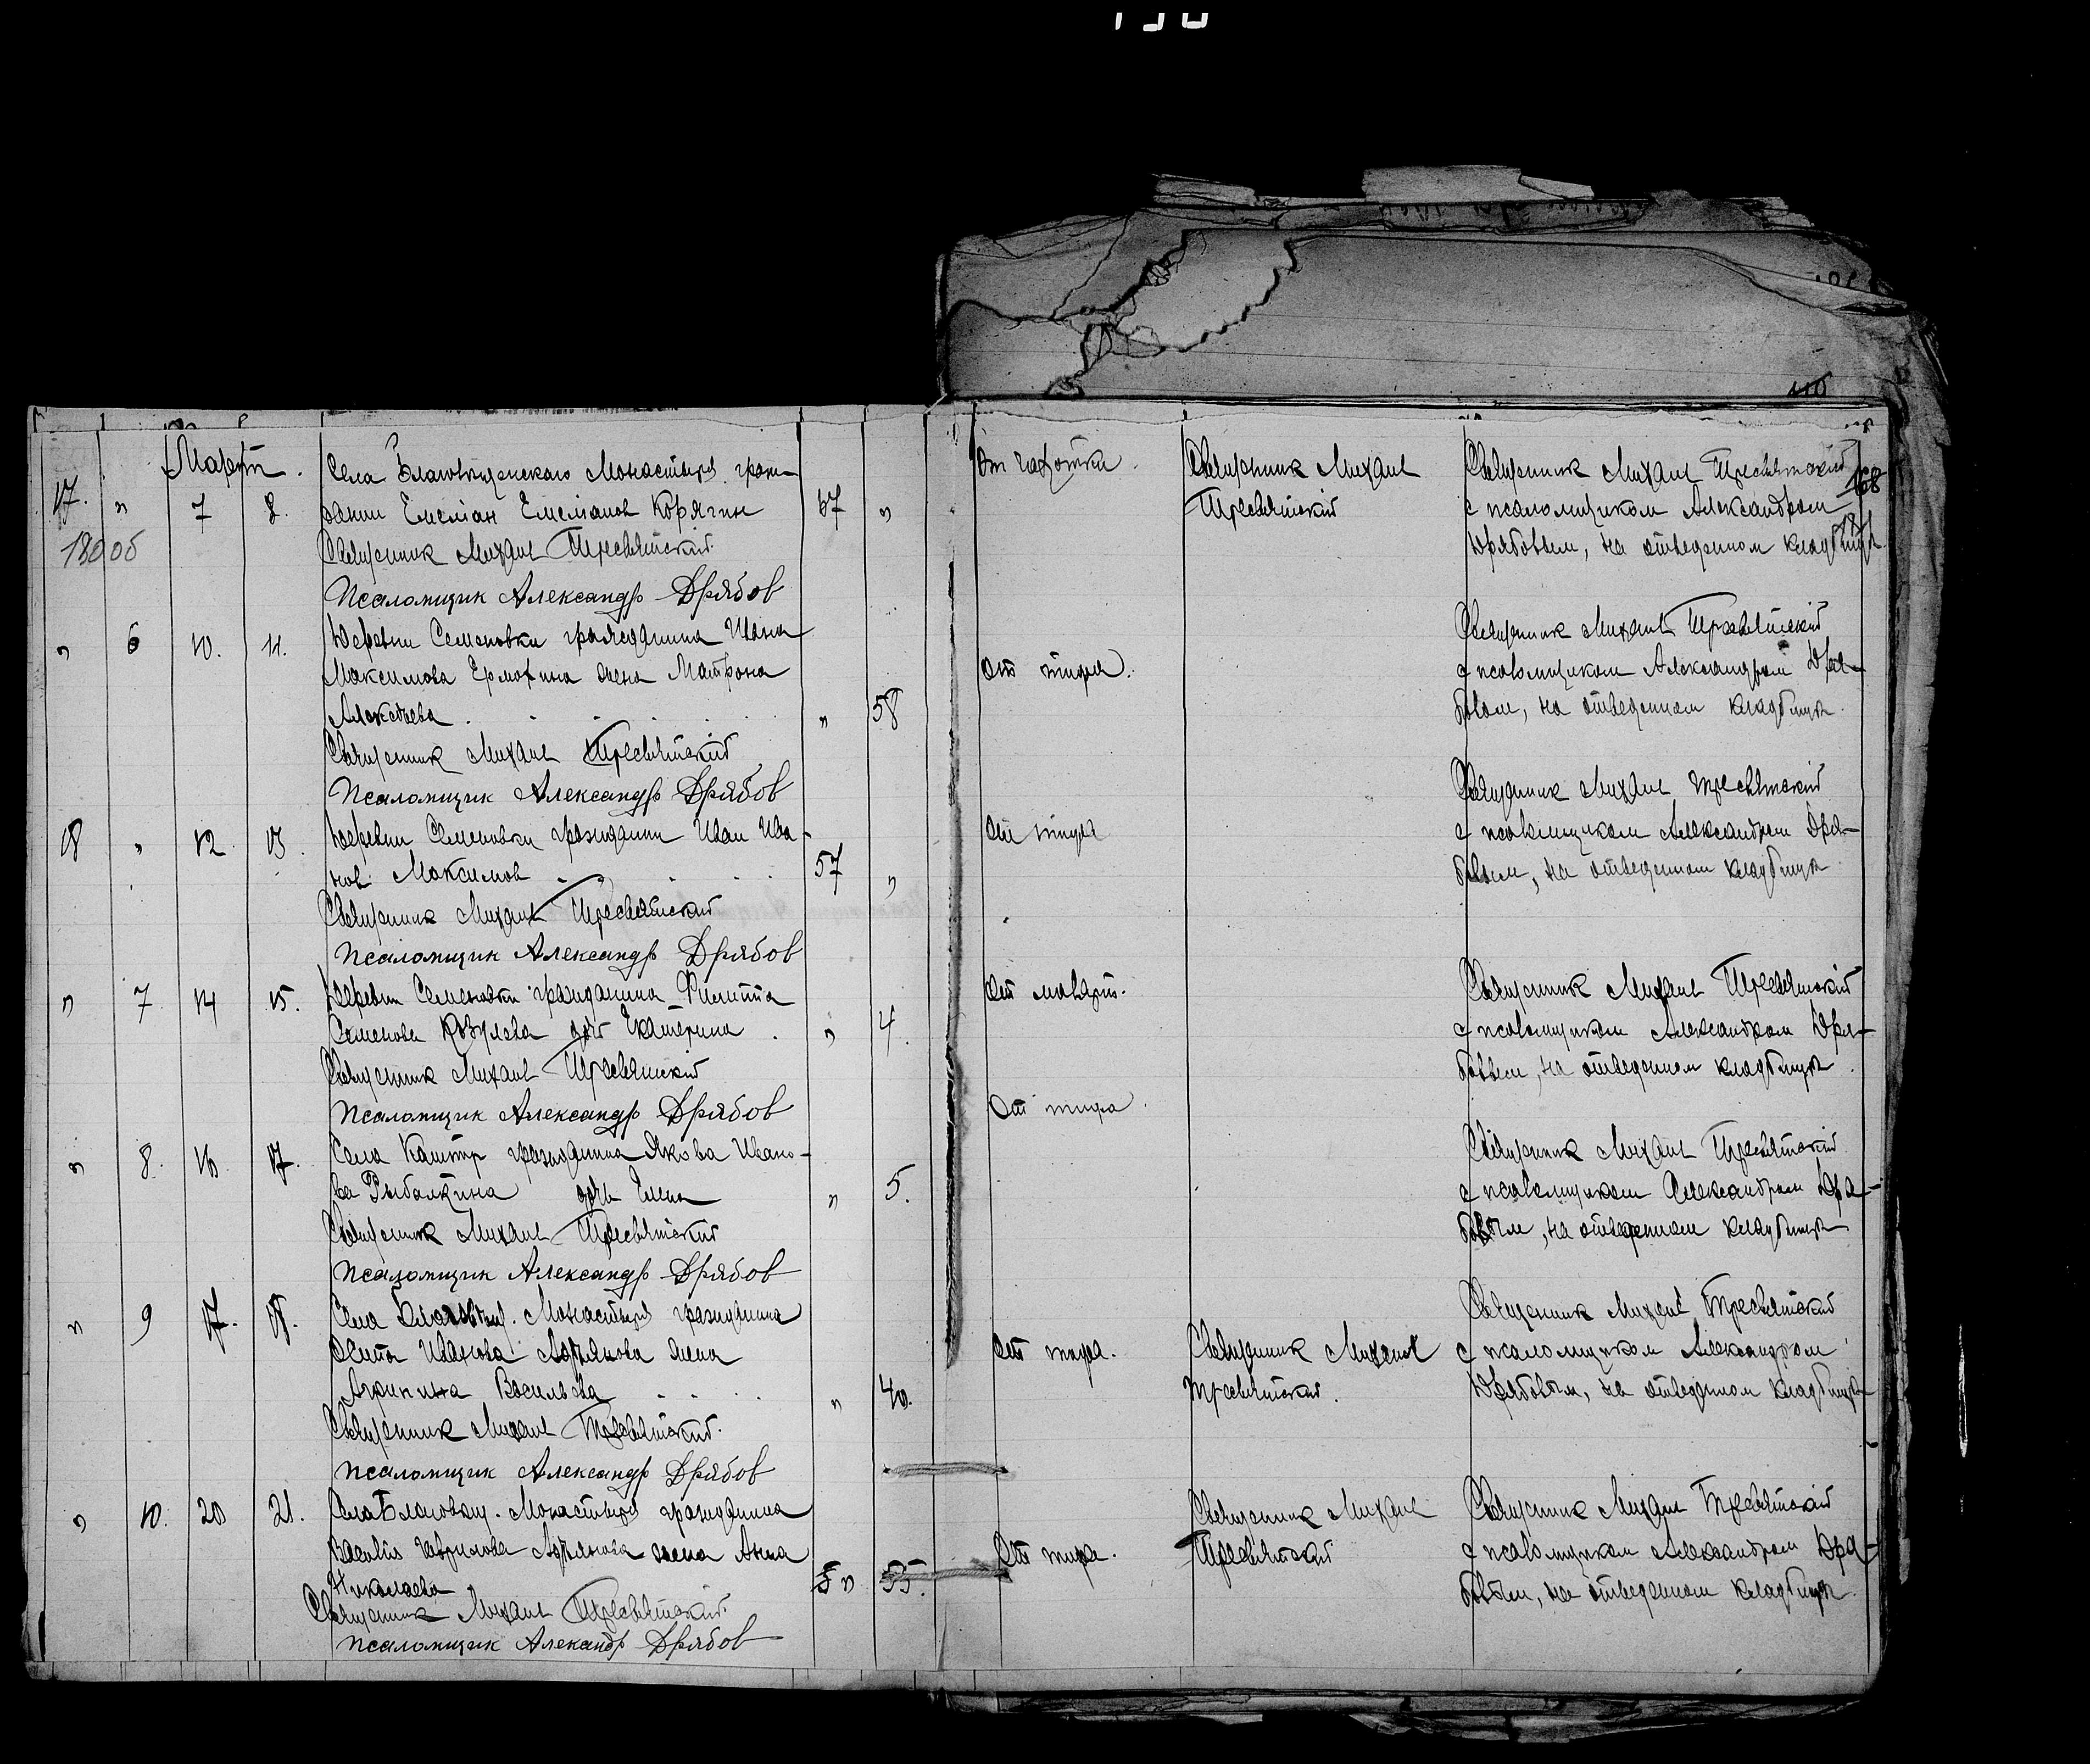 Мартъ.
17. " 7 8. Села Благовещенского Монастыря граж-
данин Емелиан Емелианов Корягин 67 "
180 об
Священник Михаил Тресвятский
Псаломщик Александр Дрябов
" 6 10. 11. Деревни Семеновки гражданина Ивана
Максимова жена Матрона
Алексеева . . . . . " 58
Священник Михаил Тресвятский
Псаломщик Александр Дрябов
18 " 12 13. Деревни Семеновки гражданин Иван Ива-
нов Максимов . . . . 57 "
Священник Михаил Тресвятский
Псаломщик Александр Дрябов
" 7 14 15. Деревни Семеновки гражданина Филиппа
Семенова Козулева дочь Екатерина . " 4.
Священник Михаил Тресвятский
Псаломщик Александр Дрябов
" 8. 16. 17. Села гражданина Якова Ивано-
ва Рыбалкина дочь Елена " 5.
Священник Михаил Тресвятский
Псаломщик Александр Дрябов
" 9 17. 18. Села Благовещ. Монастыря гражданина
Иванова жена
Агрипина Васильева . . . " 40.
Священник Михаил Тресвятский
Псаломщик Александр Дрябов
" 10. 20 21. Села Благовещ. Монастыря гражданина
Василия Гаврилова жена Анна
Николаева " 55.
Священник Михаил Тресвятский
Псаломщик Александр Дрябов
110
168
От чахотки.
Священник Михаил
Тресвятский
Священник Михаил Тресвятский
с псаломщиком Александром
Дрябовым, на отведенном кладбище
От тифа.
Священник Михаил Тресвятский
с псаломщиком Александром Дря-
бовым, на отведенном кладбище.
От тифа
Священник Михаил Тресвятский
с псаломщиком Александром Дря-
бовым, на отведенном кладбище.
От
Священник Михаил Тресвятский
с псаломщиком Александром Дря-
бовым, на отведенном кладбище.
От тифа.
Священник Михаил Тресвятский
с псаломщиком Александром Дря-
бовым, на отведенном кладбище
От тифа.
Священник Михаил
Тресвятский.
Священник Михаил Тресвятский
с псаломщиком Александром
Дрябовым, на отведенном кладбище
От тифа.
Священник Михаил
Тресвятский
Священник Михаил Тресвятский
с псаломщиком Александром Дря-
бовым, на отведенном кладбище.